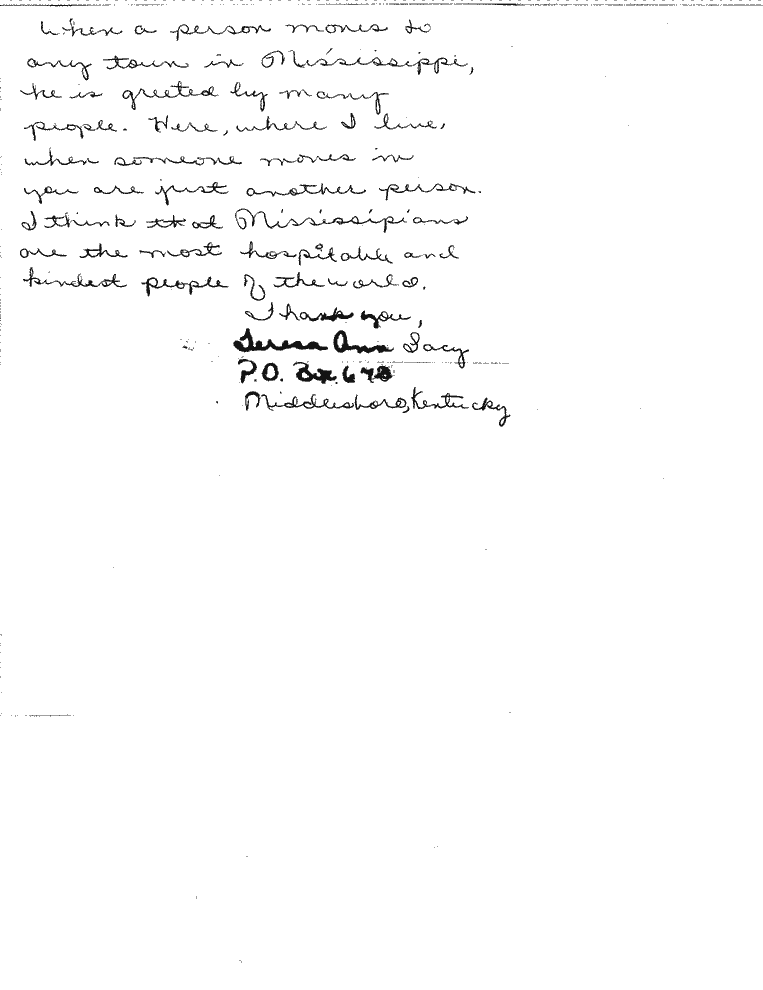 When a person moves to
any town in Mississippi,
he is greeted by many
people. Here, where I live,
when someone moves in
you are just another person.
I think that Mississipians
are the most hospitable and
kindest people of the world.
Thank you,
Teresa Ann Lacy
P.O. Box 678
Middlesboro, Kentucky